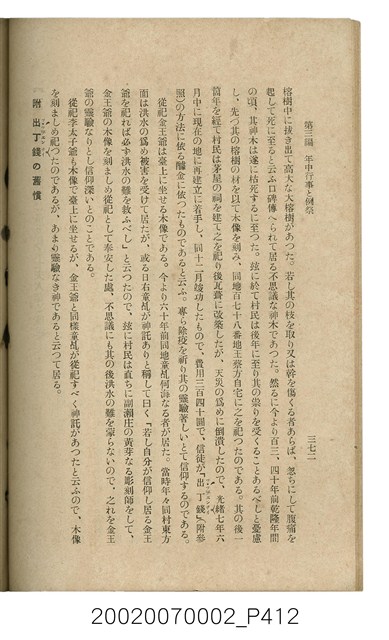 第三編　年中行事と例祭
三七二
榕樹中に拔き出て高大な大榕樹があつた。若し其の枝を取り又は幹を傷くる者あらば、忽ちにして腹痛を
起して死に至ると云ふ口碑傳へられて居る不思議な神木であつた。然るに今より百三、四十年前乾隆年間
の頃、其神木は遂に枯死するに至つた。玆に於て村民は後年に至り其の祟りを受くることあるべしと憂慮
し、先づ其の榕樹の材を以て木像を刻み、同地百七十八番地王祭方自宅に之を祀つたのである。其の後一
箇年を經て村民は茅屋の祠を建て之を祀り後瓦葺に改築したが、天災の爲めに倒潰したので、光緖七年六
月中に現在の地に再建立に着手し、同十二月竣功したもので、費用三百四十圓で、信徒が「出丁錢」(附參
照)の方法に依る醵金に依つたものであると云ふ。專ら除疫を祈り其の靈驗著しいとて信仰するのである。
從祀金王爺は臺上に坐せる木像である。今より六十年前同地童乩何海なる者が居た。當時年々同村東方
面は洪水の爲め被害を受けて居たが、或る日右童乩が神託ありと稱して曰く「若し自分が信仰し居る金王
爺を祀れば必ず洪水の難を救ふべし」と云つたので、玆に村民は直ちに副瀨庄の黃芽なる彫刻師をして、
金王爺の木像を刻ましめ從祀として奉安した處、不思議にも其の後洪水の難を蒙らないので、之れを金王
爺の靈驗なりとし信仰深いとのことである。
從祀李太子爺も木像で臺上に坐せるが、金王爺と同樣童乩が從祀すべく神託があつたと云ふので、木像
を刻ましめ祀つたのであるが、あまり靈驗なき神であると云つて居る。
附　出丁錢の舊慣
20020070002_P412